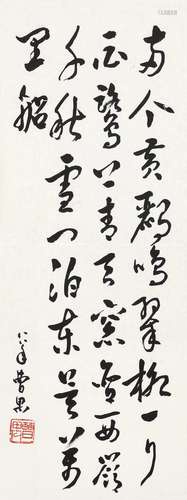 两个黄鸝鳴翠柳一行
白鷺上青天窗含西嶺
千秋雪门泊东吴万
里船